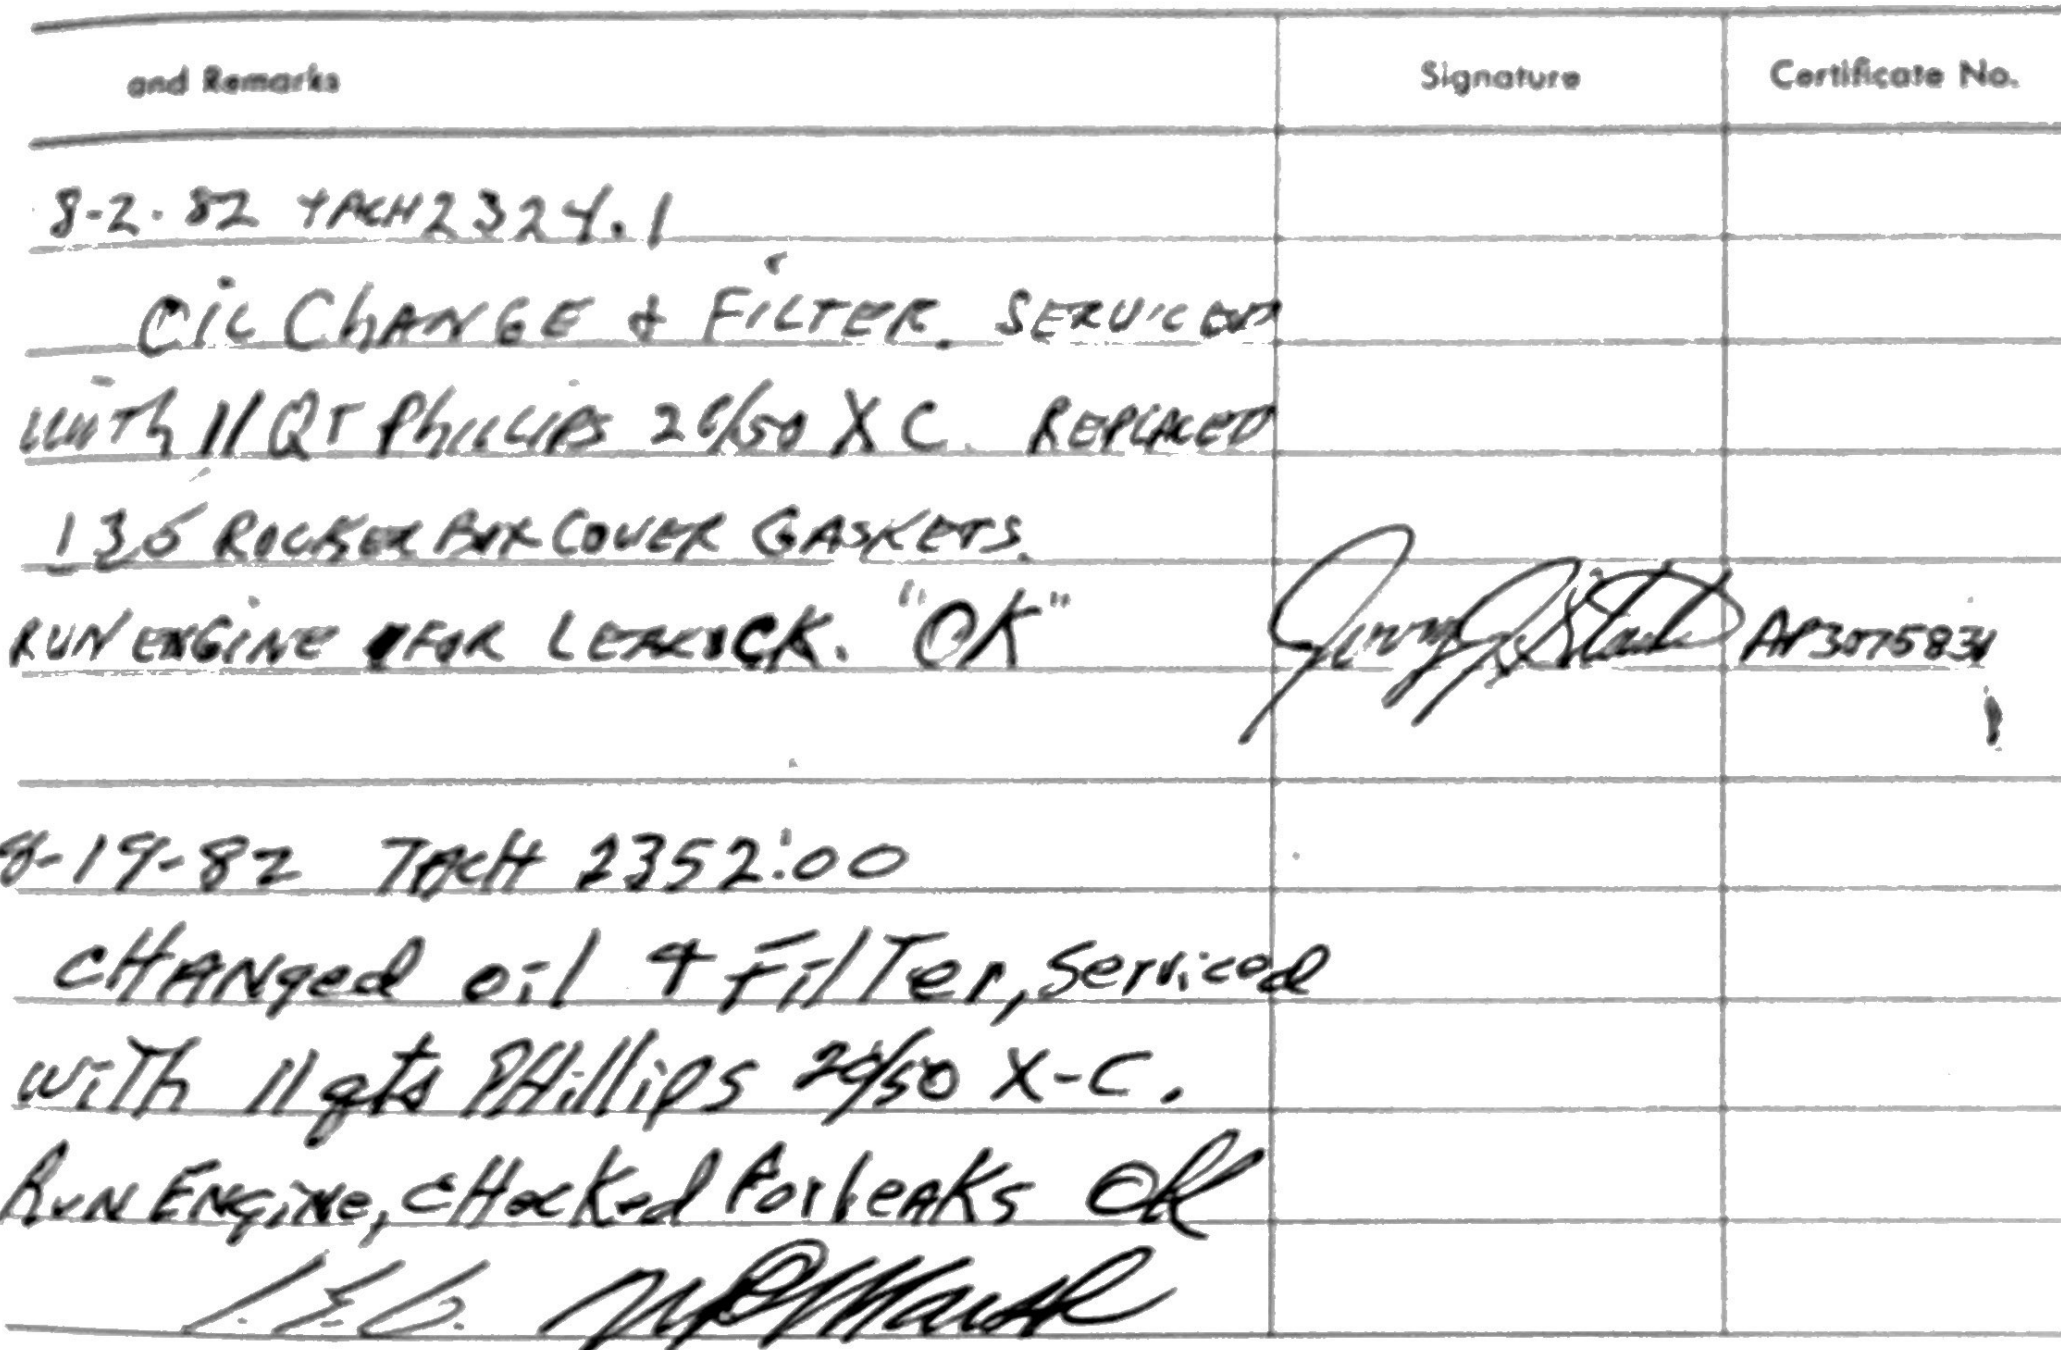 and Remarks Signature Certificate No.
8-2-82 TACH 2324.1
OIL ChANGE & FILTER. SERVICED
with 11 QT Phillips 20/50 X C. REPLACED
1 3 5 ROCKER BOX COVER GASKETS.
RUN ENGINE FOR LEAK CK. "OK" AP3075834
8-19-82 TACH 2352:00
cHANged oil & FilTer, serviced
wiTh 11 qts PHillips 20/50 X-C.
RUN ENgiNe, cHecked For leAKs OK